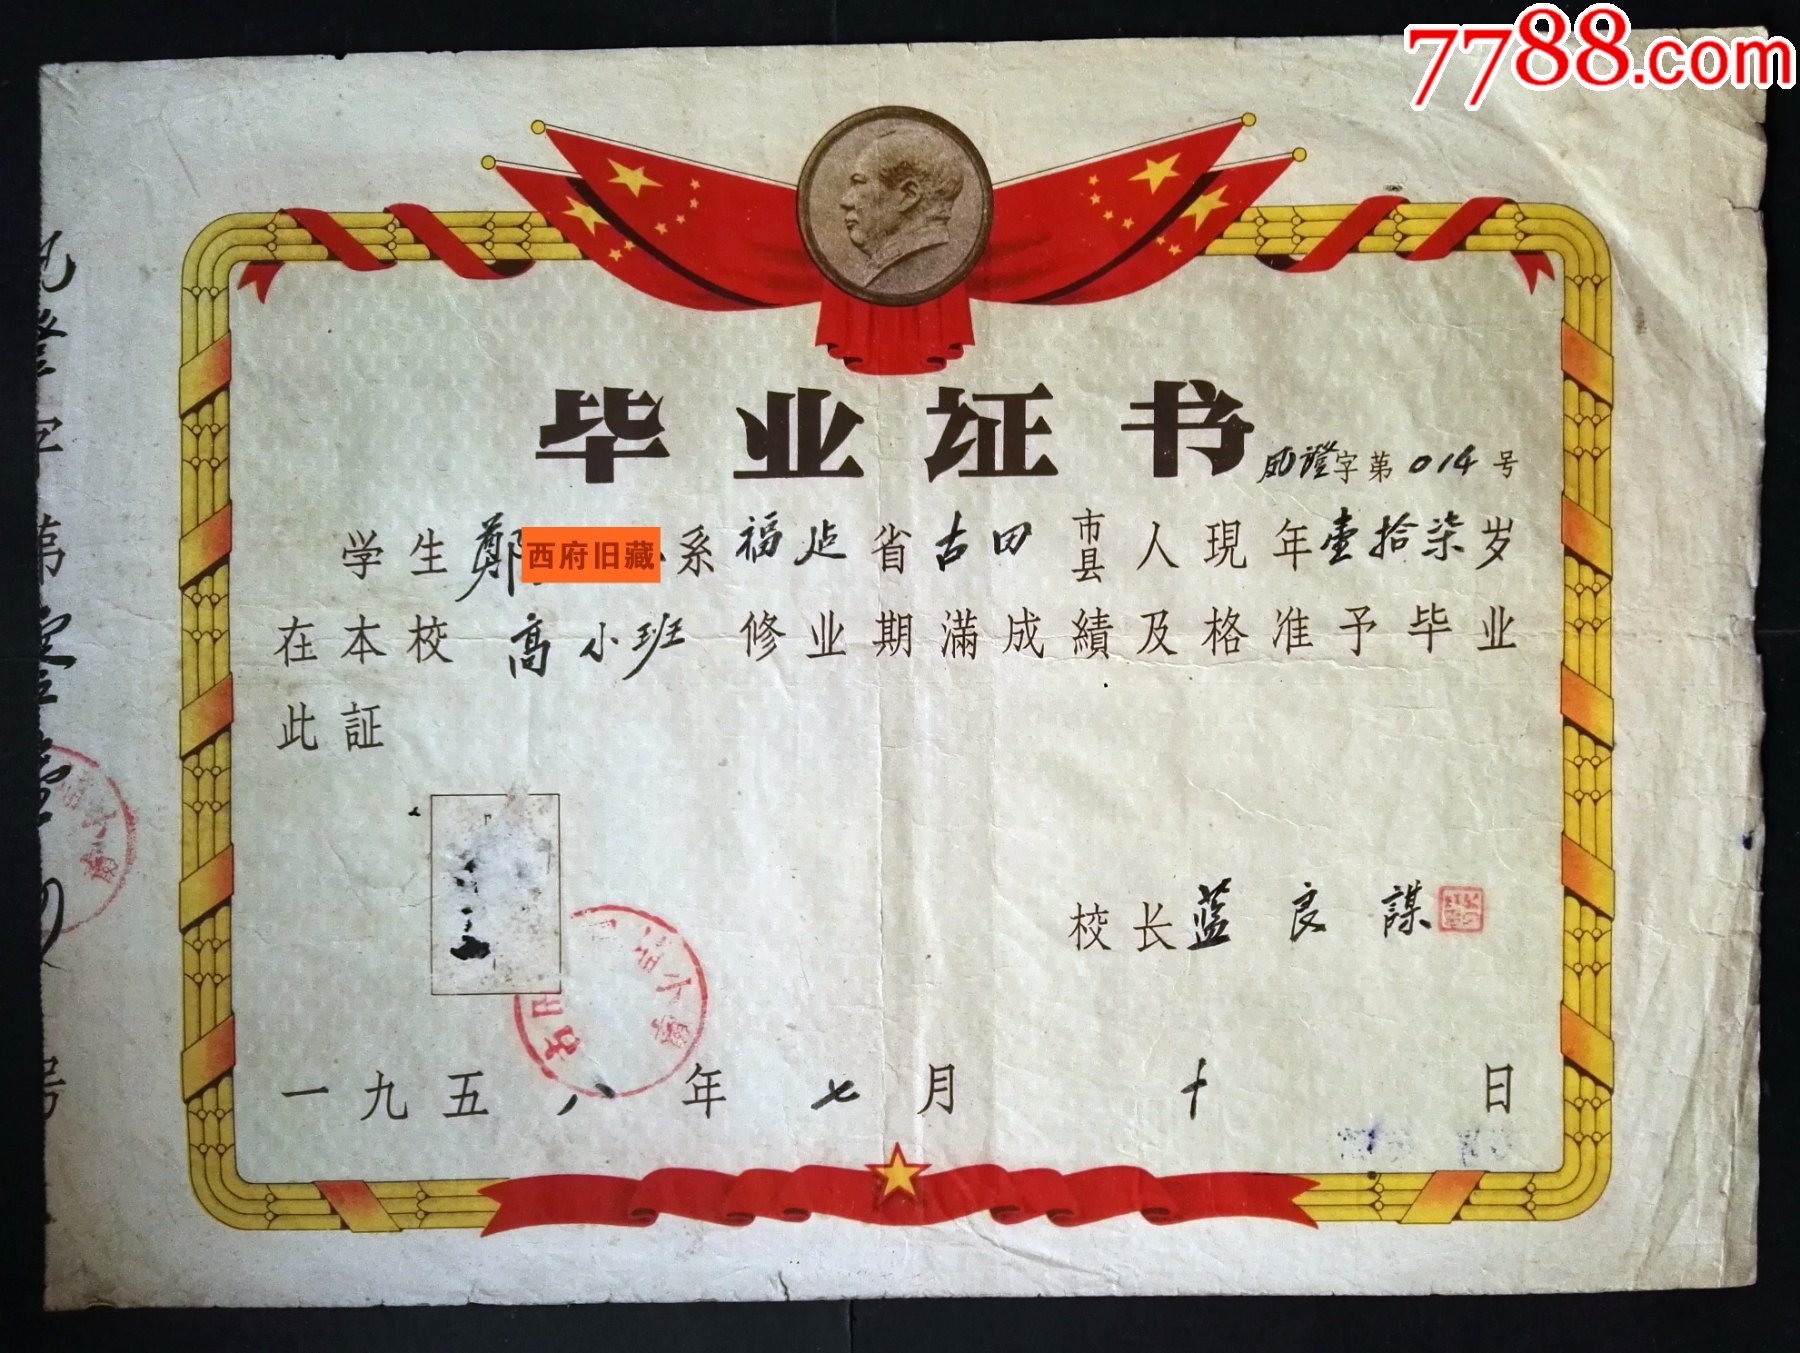 7788.com
毕业证书
凤證字第014号
学生鄭 西府旧藏 系福建省古田市县人現年壹拾柒岁
在本校高小班修业期滿成績及格准予毕业
此証
校长蓝良謀
一九五八年七月十日